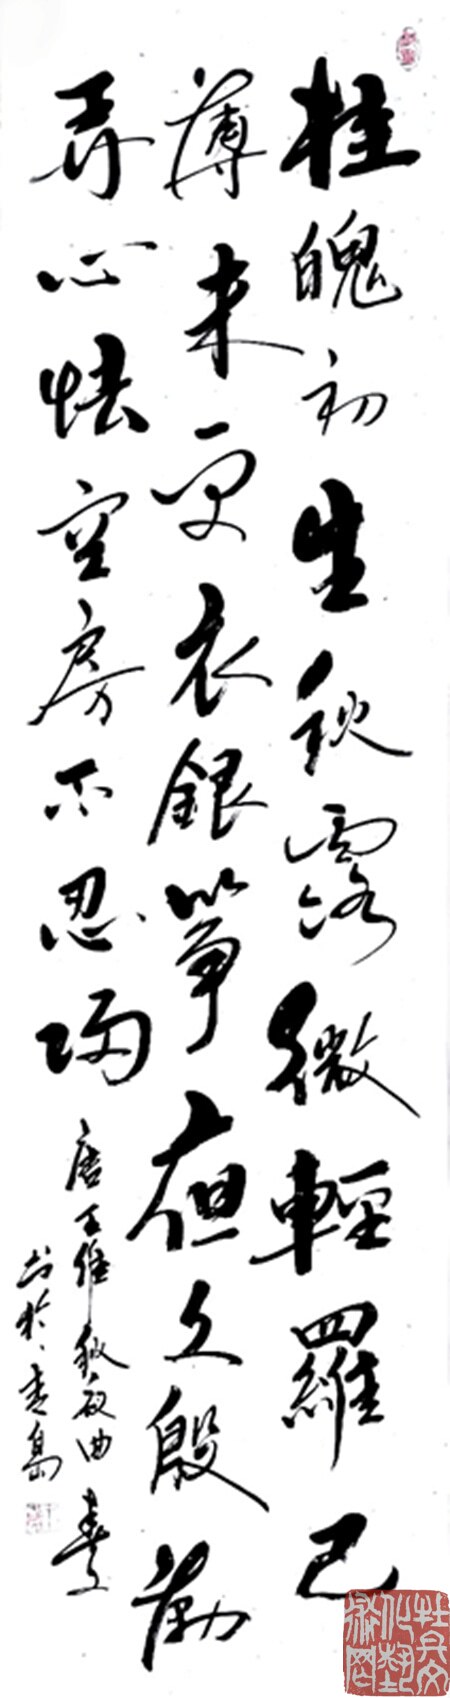 桂魄初生秋露微輕羅已
薄未更衣銀箏夜久殷勤
弄心怯空房不忍歸
唐王維秋夜曲
书於青島